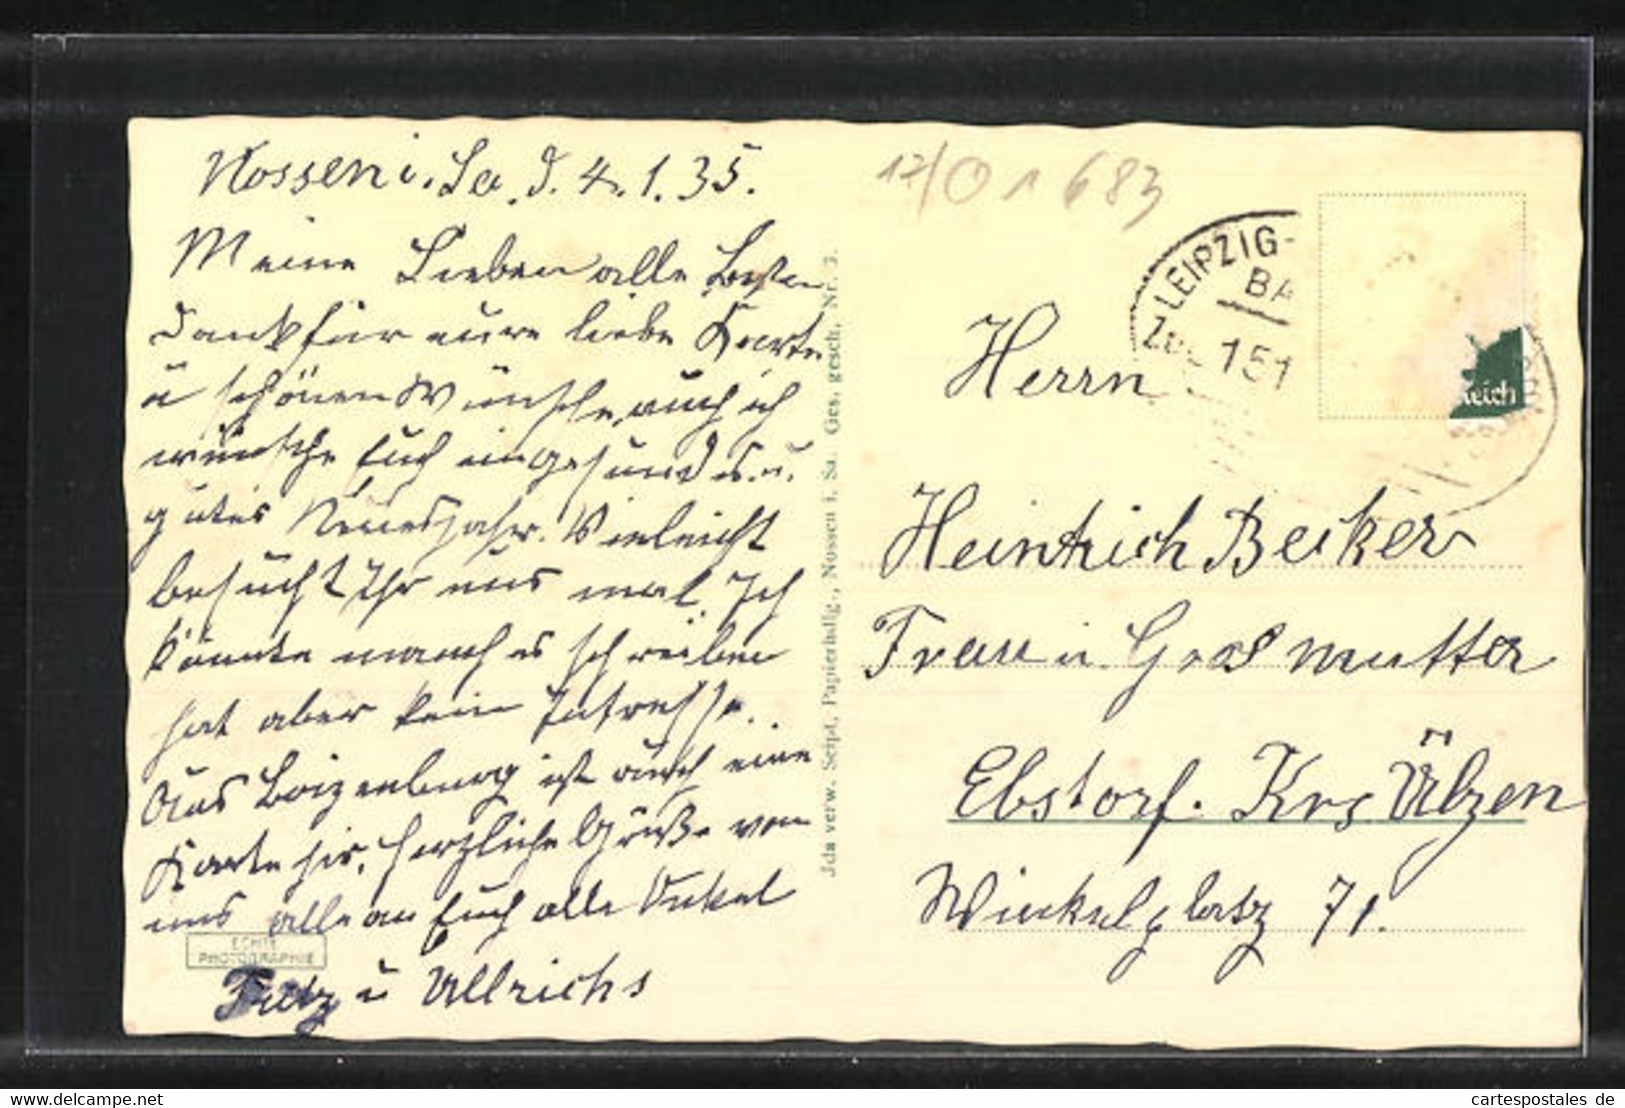 Nossen i. Sa. d. 4.1.35.
Meine Lieben alle Besten
Dank für eure liebe Karte
u schönen Wünsche, auch ich
wünsche Euch ein gesundes u.
gutes Neuesjahr. Vieleicht
besucht Ihr uns mal. Ich
könnte manches schreiben
hat aber kein Intresse.
Aus Boizenburg ist auch eine
Karte hir. Herzliche Grüße von
uns alle an Euch alle Onkel
Fritz u Ullrichs
ECHTE
PHOTOGRAPHIE
Jda verw. Seipt, Papierhdlg., Nossen i. Sa. Ges. gesch. Nr. 3.
LEIPZIG-
BA
Zug 151
reich
Herrn
Heintrich Becker
Frau u. Grosmutter
Ebstorf. Krs Ülzen
Winkelplatz 71.
www.delcampe.net
cartespostales de